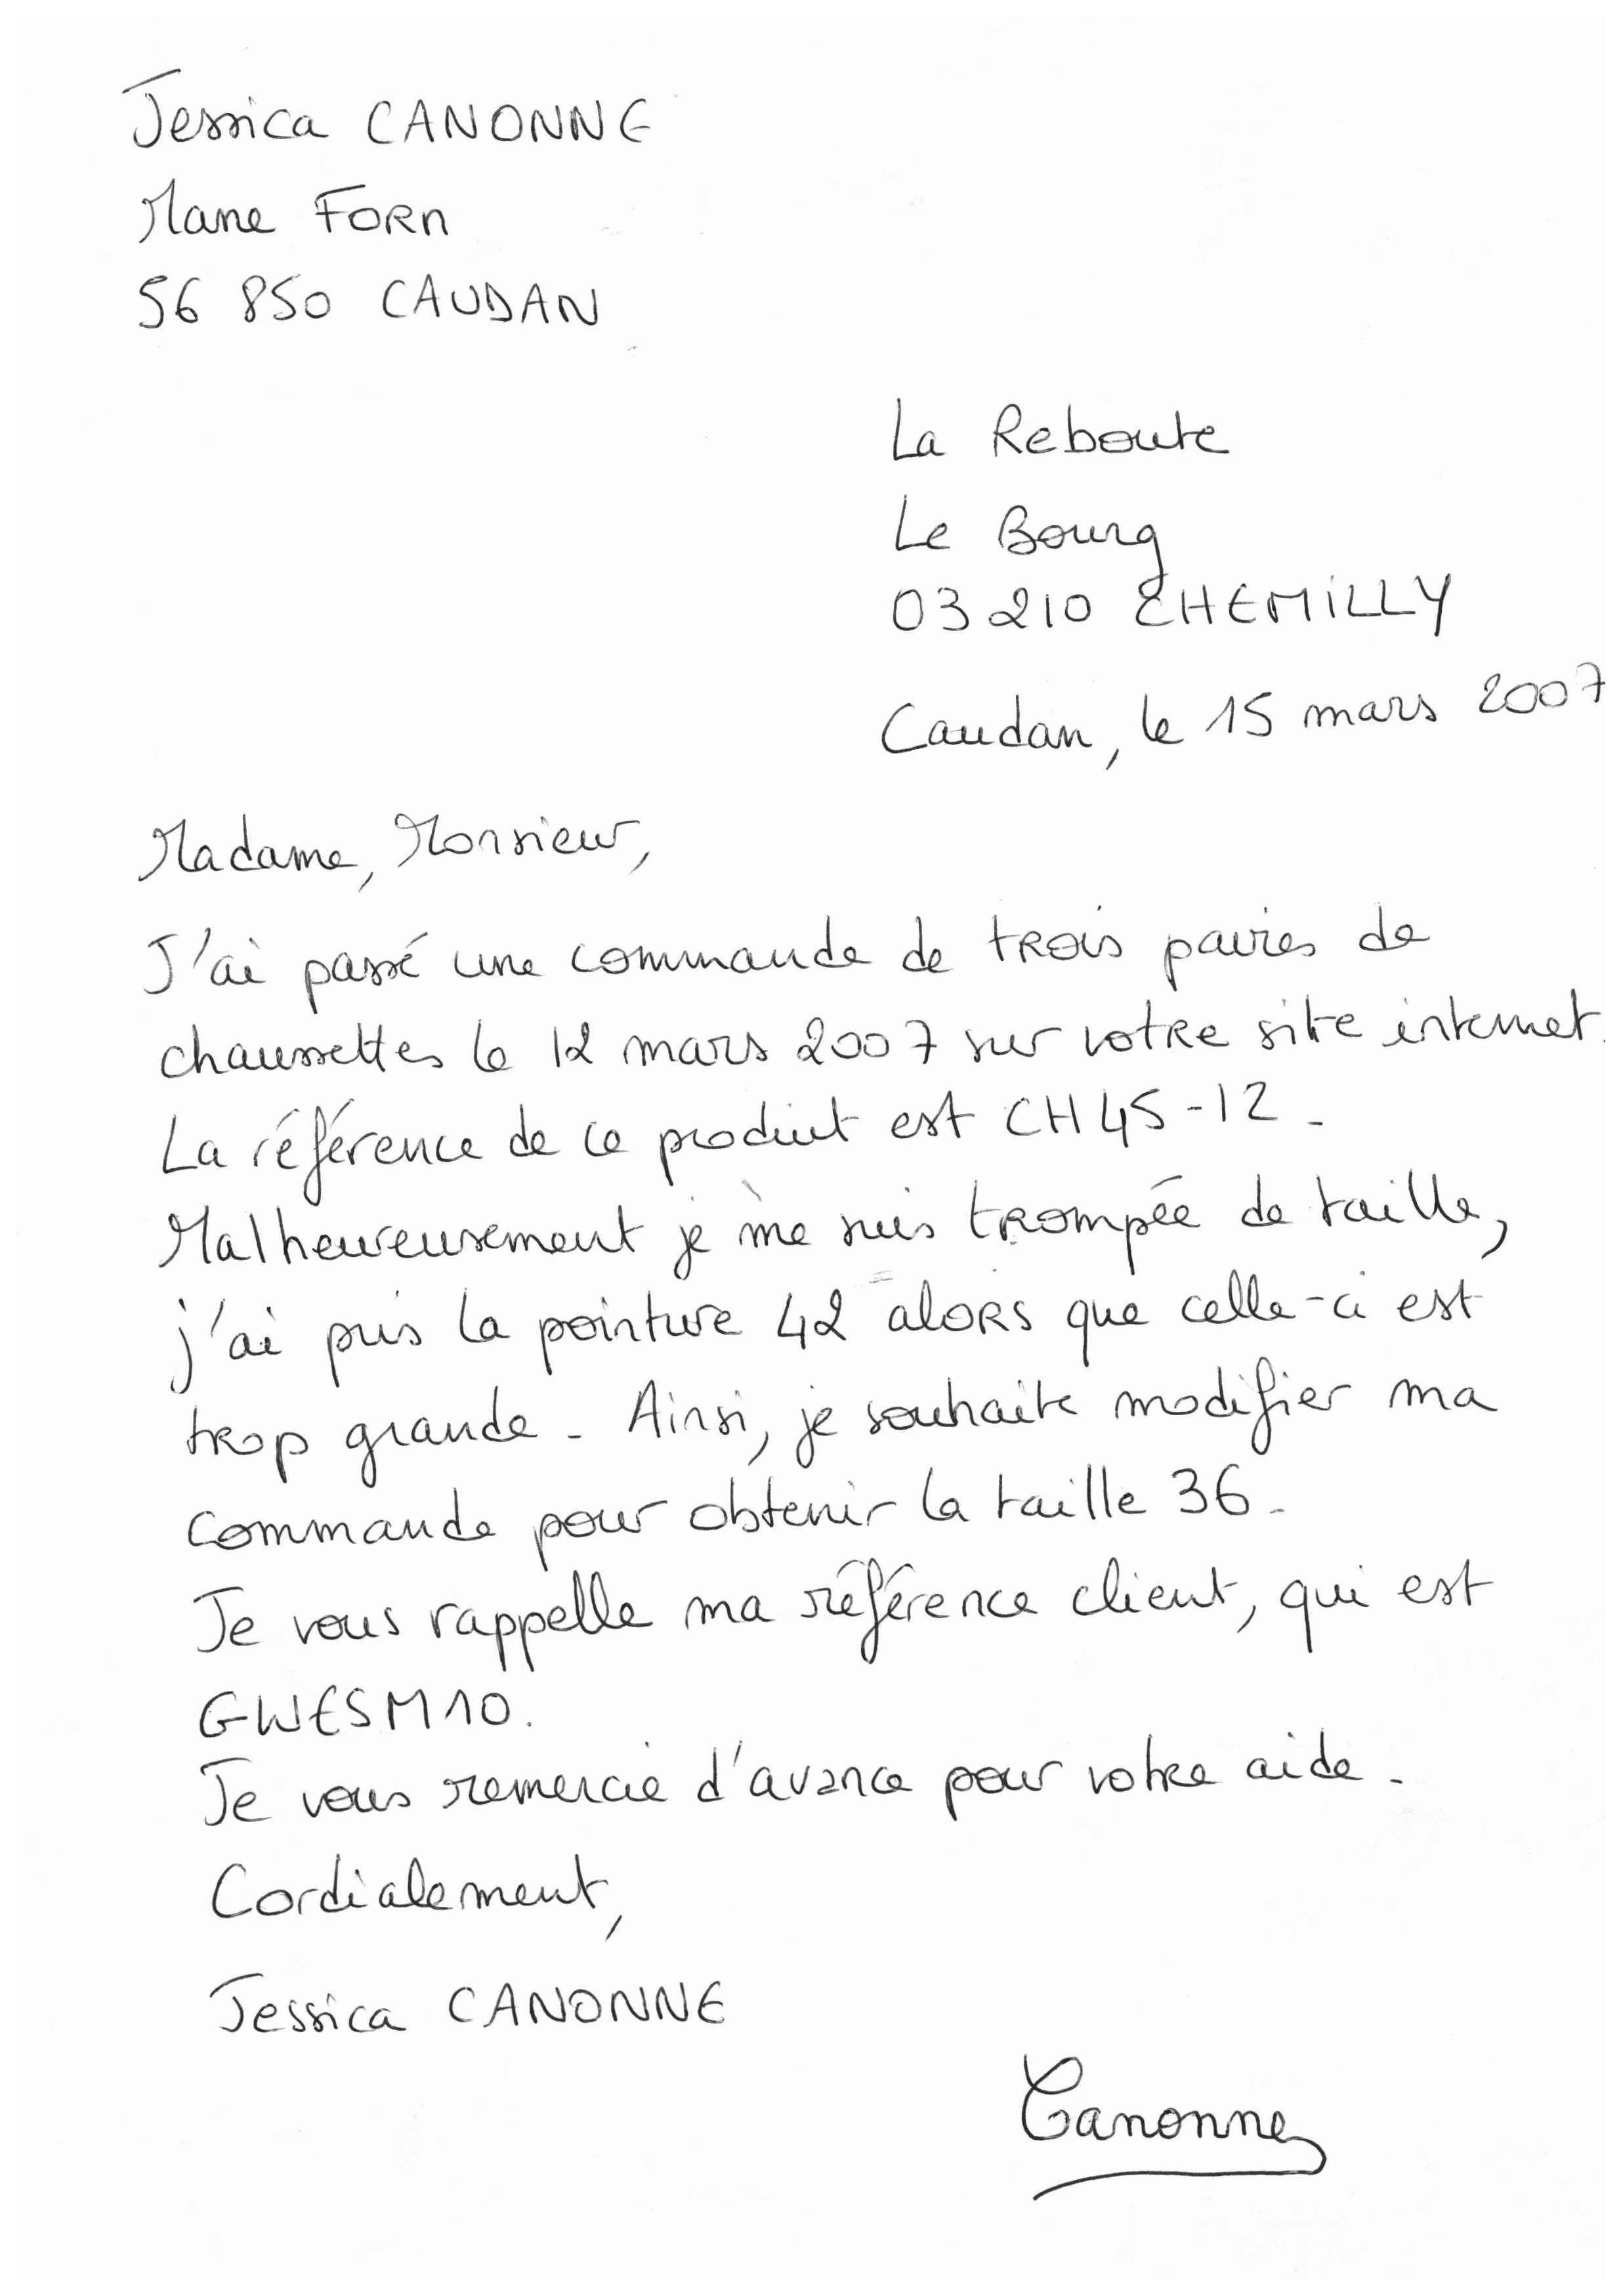 Jessica CANONNE
Mane Forn
56 850 CAUDAN
La Reboute
Le Bourg
03 210 CHEMILLY
Caudan, le 15 mars 2007
Madame, Monsieur,
J'ai passé une commande de trois paires de
chaussettes le 12 mars 2007 sur votre site internet.
La référence de ce produit est CH45-12.
Malheureusement je me suis trompée de taille,
j'ai pris la pointure 42 alors que celle-ci est
trop grande. Ainsi, je souhaite modifier ma
commande pour obtenir la taille 36.
Je vous rappelle ma référence client, qui est
GWESM10.
Je vous remercie d'avance pour votre aide.
Cordialement,
Jessica CANONNE
Canonne